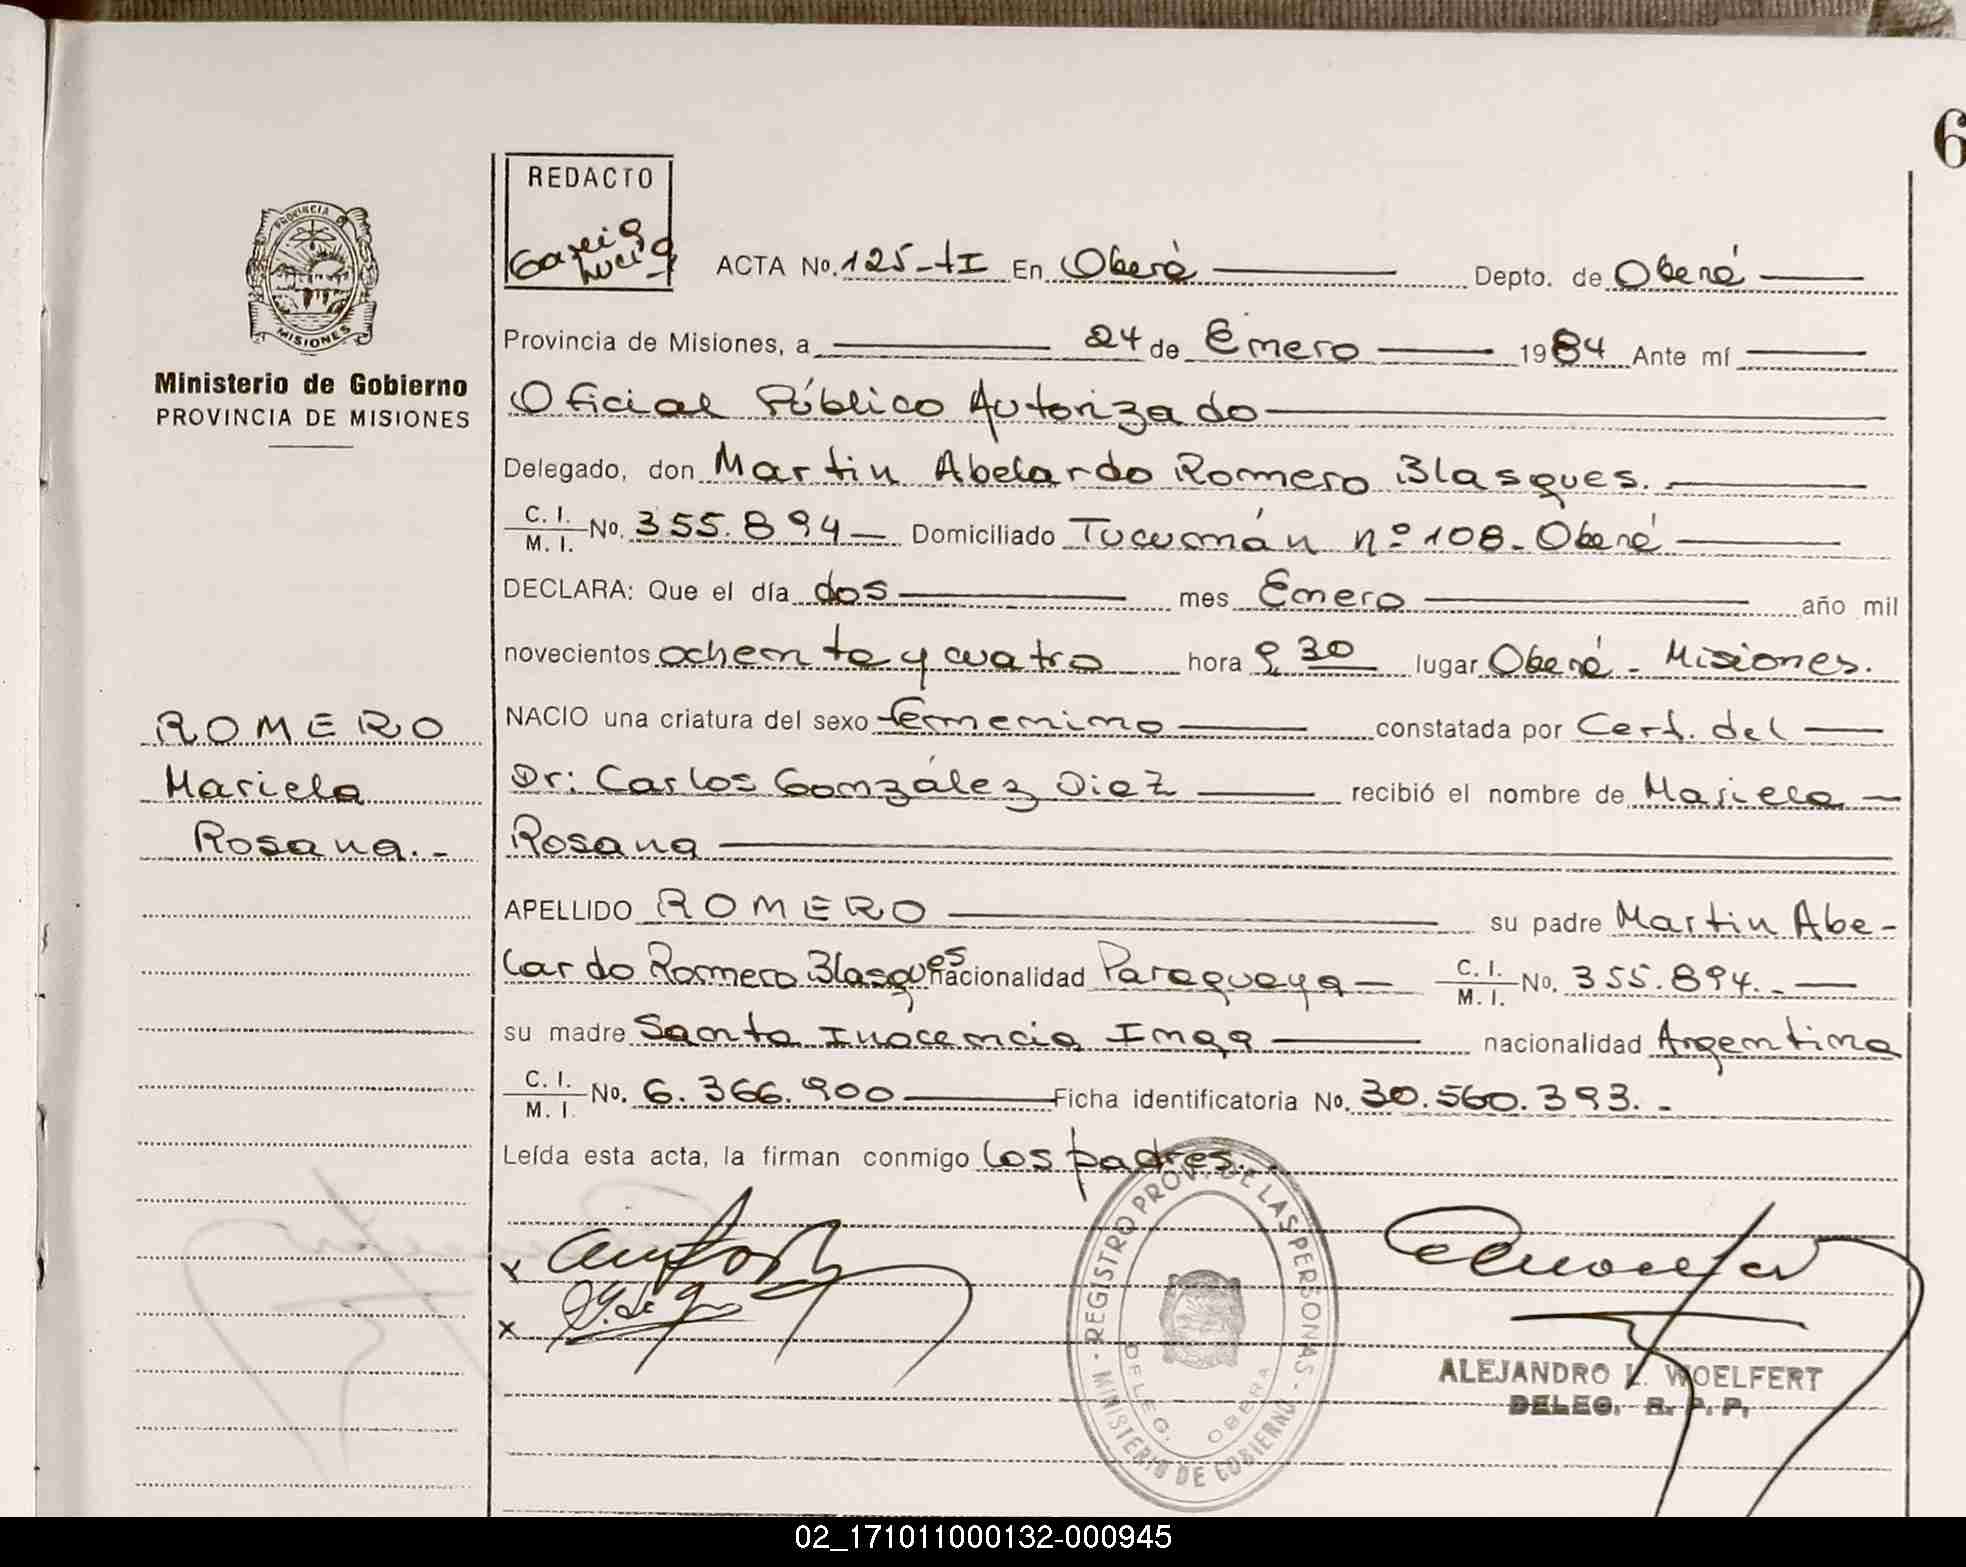 6
REDACTO
Garcia
Lucia
PROVINCIA DE
MISIONES
ACTA No. 125-tI En Oberá Depto. de Oberá
Ministerio de Gobierno
PROVINCIA DE MISIONES
Provincia de Misiones, a 24 de Enero 1984 Ante mí
Oficial Público Autorizado
Delegado, don Martin Abelardo Romero Blasques.
C. I. / M. I. No. 355.894 Domiciliado Tucumán nº 108 - Oberá
DECLARA: Que el día dos mes Enero año mil
novecientos ochenta y cuatro hora 9,30 lugar Oberá - Misiones.
ROMERO
Mariela
Rosana.-
NACIO una criatura del sexo femenino constatada por Cert. del
Dr: Carlos González Diez recibió el nombre de Mariela
Rosana
APELLIDO ROMERO su padre Martin Abe-
lardo Romero Blasques nacionalidad Paraguaya C. I. / M. I. No. 355.894.-
su madre Santa Inocencia Imaa nacionalidad Argentina
C. I. / M. I. No. 6.366.900 Ficha identificatoria No. 30.560.393.-
Leída esta acta, la firman conmigo los padres.
x
x
REGISTRO PROV. DE LAS PERSONAS - MINISTERIO DE GOBIERNO -
DELEG. OBERA
ALEJANDRO L. WOELFERT
DELEG. R. P. P.
02_171011000132-000945